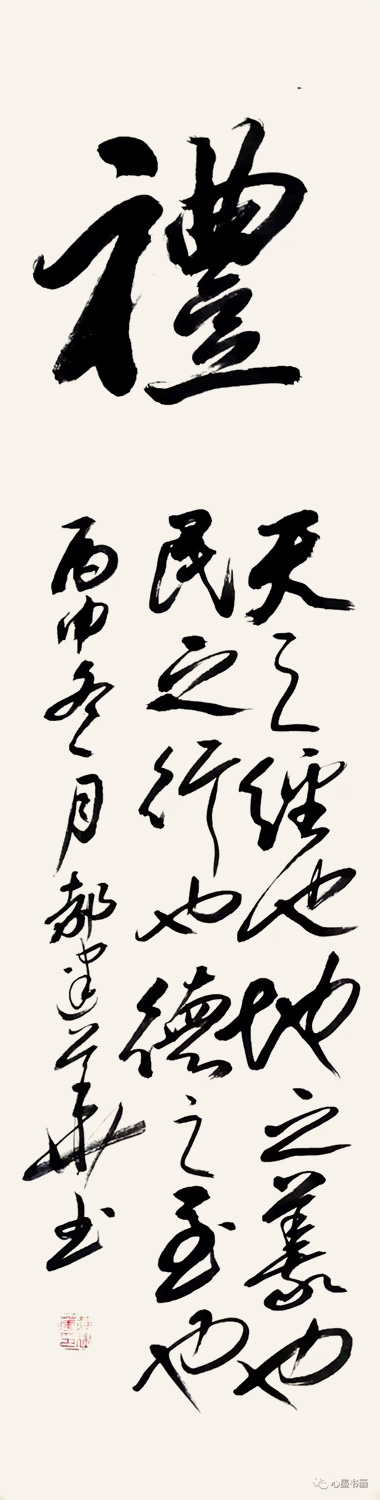 禮
天之經也地之義也
民之行也德之至也
丙申冬月郝建華书
心墨书画